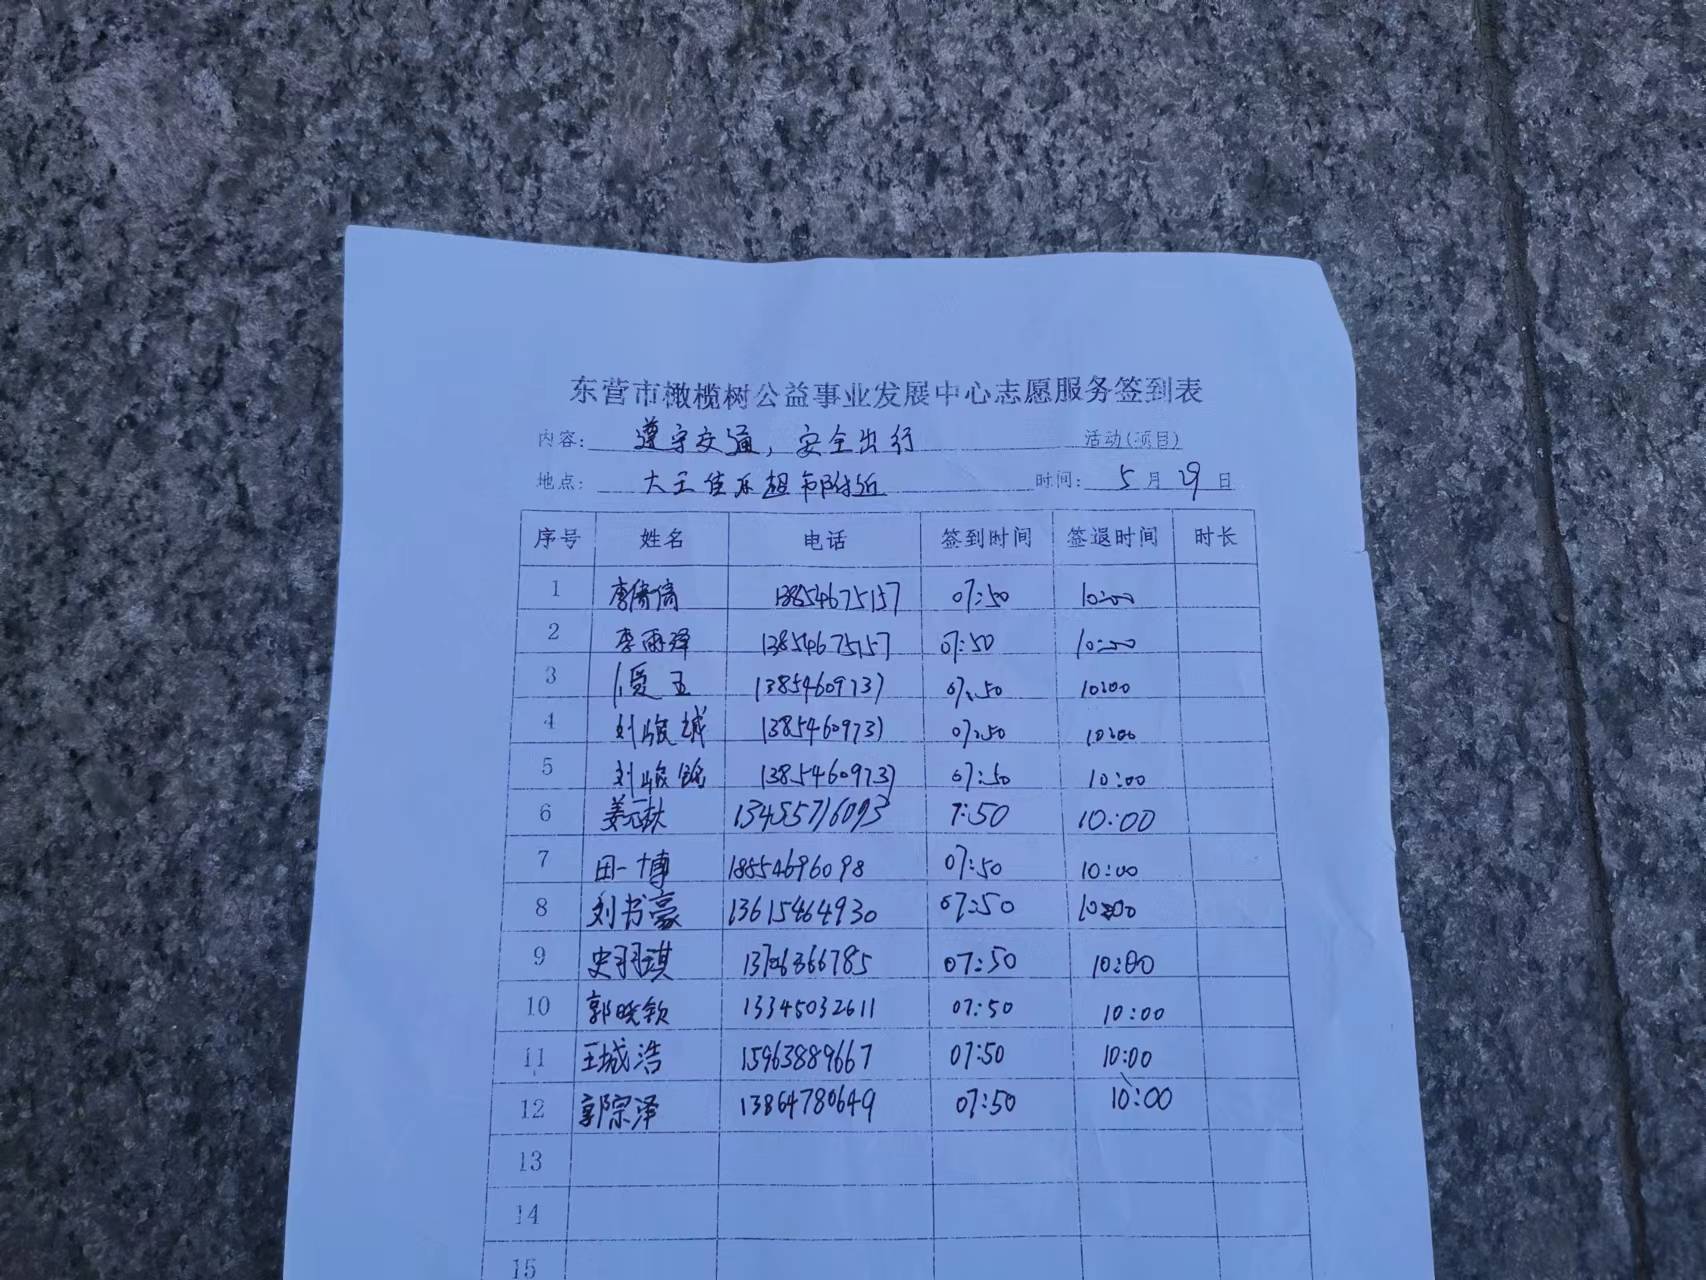 东营市橄榄树公益事业发展中心志愿服务签到表
内容: 遵守交通，安全出行 活动(项目)
地点: 大王佳乐超市附近 时间: 5月29日
序号 姓名 电话 签到时间 签退时间 时长
1 李倩倩 13854675157 07:50 10:00
2 李雨泽 13854675157 07:50 10:00
3 玉 13854609737 07:50 10:00
4 刘峻城 13854609737 07:50 10:00
5 刘峻铭 13854609737 07:50 10:00
6 姜元秋 13455716093 7:50 10:00
7 田一博 18554696098 07:50 10:00
8 刘书豪 13615464930 07:50 10:00
9 史羽琪 07:50 10:00
10 郭晓钦 13345032611 07:50 10:00
11 王城浩 15963889667 07:50 10:00
12 郭宗泽 13864780649 07:50 10:00
13
14
15